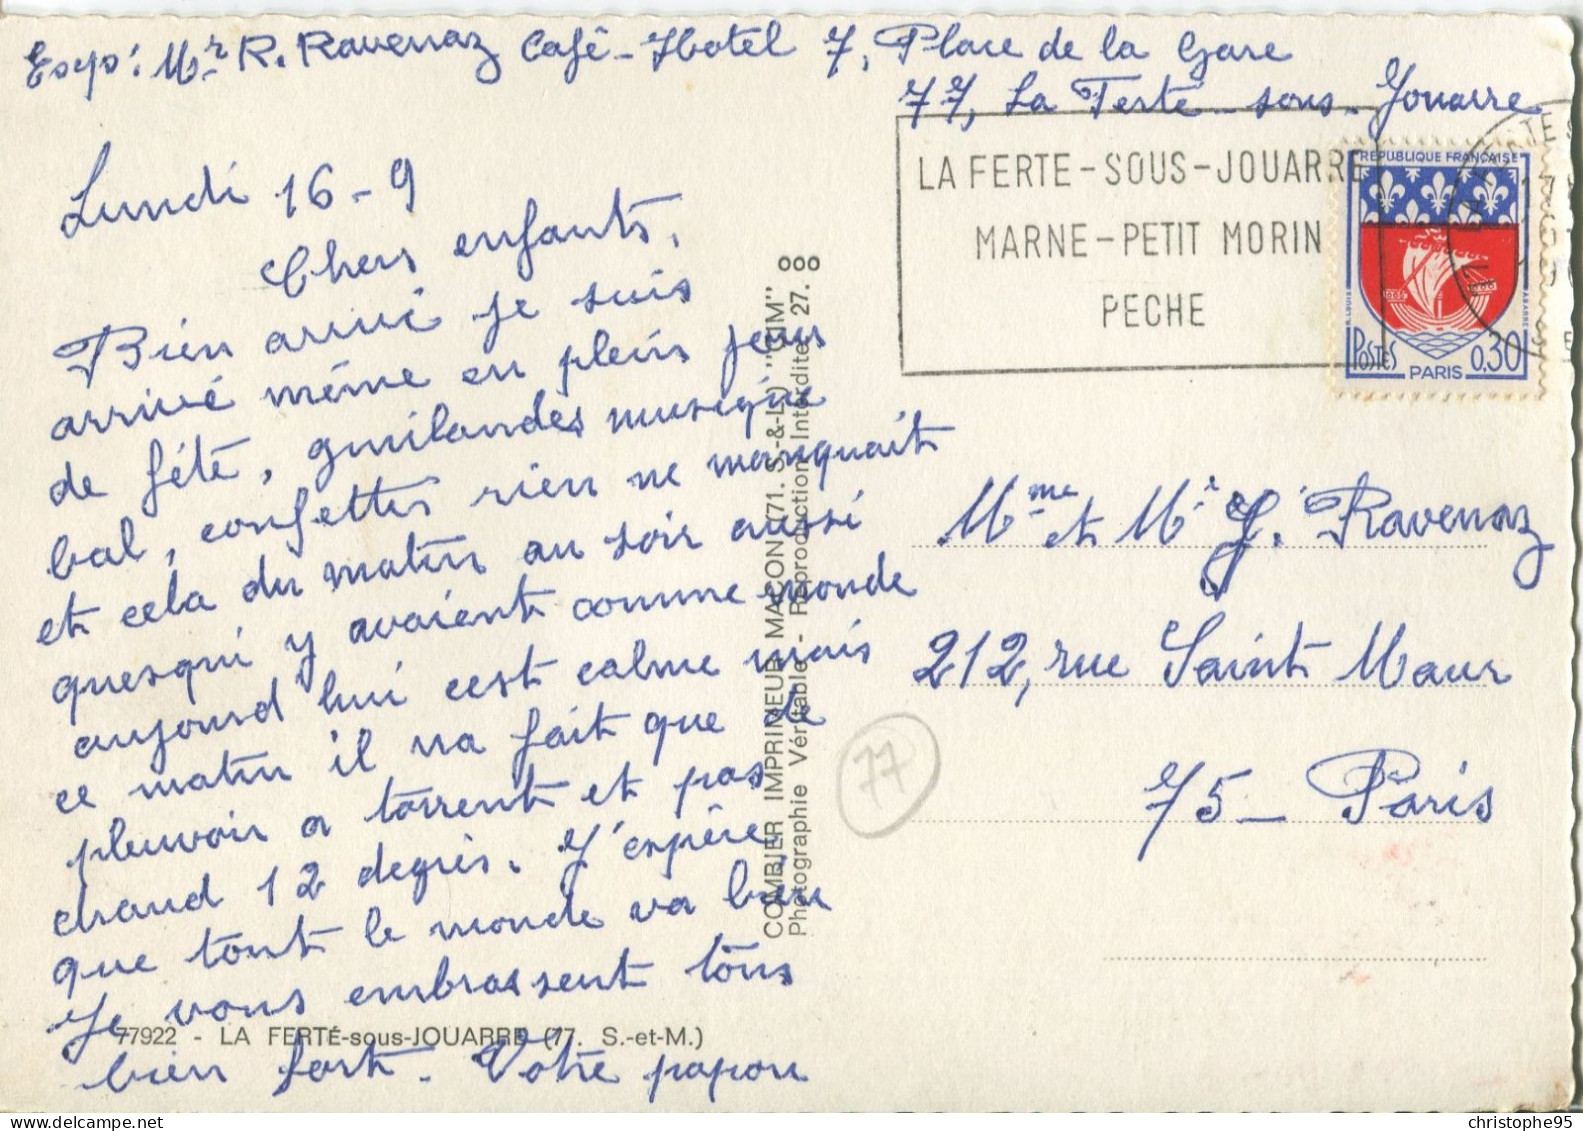 Exp: Mr R. Ravenaz Café-Hotel 7, Place de la Gare
77, La Ferté-sous-Jouarre
LA FERTE-SOUS-JOUARRE
MARNE-PETIT MORIN
PECHE
REPUBLIQUE FRANÇAISE
POSTES
PARIS
0,30
Lundi 16-9
Chers enfants,
Bien arrivé je suis
arrivé même en plein jour
de fête, guilandes musique
bal, confettis rien ne manquait
et cela du matin au soir aussi
quesqui y avaient comme monde
aujourd hui cest calme mais
ce matin il na fait que de
pleuvoir a torrent et pas
chaud 12 degrès. J'espère
que tout le monde va bien
Je vous embrassent tous
bien fort. Votre papou
77922 - LA FERTÉ-sous-JOUARRE (77. S.-et-M.)
COMBIER IMPRIMEUR MACON (71. S.-&-L.) "CIM"
Photographie Véritable - Reproduction Interdite 27. 000
Mme et Mr J. Ravenaz
212, rue Saint Maur
75-Paris
77
christophe95